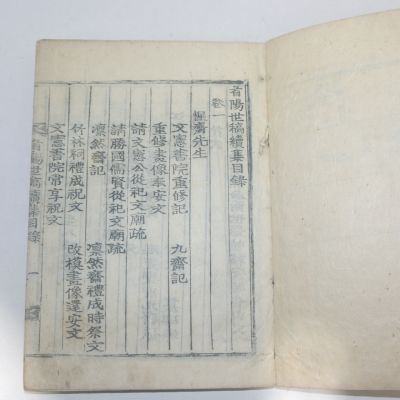 首陽世稿續集目錄
卷一
惺齋先生
文憲書院重修記　九齋記
重修畫像奉安文
請文憲公從祀文廟疏
請勝國儒賢從祀文廟疏
凛然齋記　凛然齋禮成時祭文
竹林祠禮成祝文　改模畫像還安文
文憲書院常享祝文
首陽世稿續集目錄　一